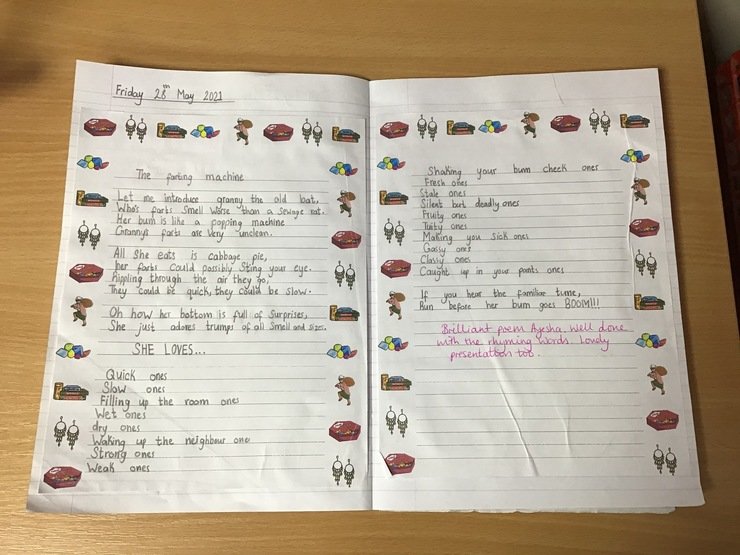 Friday 28th May 2021
The farting machine
Let me introduce granny the old bat,
Who's farts smell worse than a sewage rat.
Her bum is like a popping machine
Granny's farts are very unclean.
All she eats is cabbage pie,
her farts could possibly sting your eye.
Rippling through the air they go,
They could be quick, they could be slow.
Oh how her bottom is full of surprises,
She just adores trumps of all smell and sizes.
SHE LOVES...
Quick ones
Slow ones
Filling up the room ones
Wet ones
dry ones
Waking up the neighbour ones
Strong ones
Weak ones
Shaking your bum cheek ones
Fresh ones
Stale ones
Silent but deadly ones
Fruity ones
Tuity ones
Making you sick ones
Gassy ones
Classy ones
Caught up in your pants ones
If you hear the familiar tune,
Run before her bum goes BOOM!!!
Brilliant poem Ayesha. Well done
with the rhyming words. Lovely
presentation too.